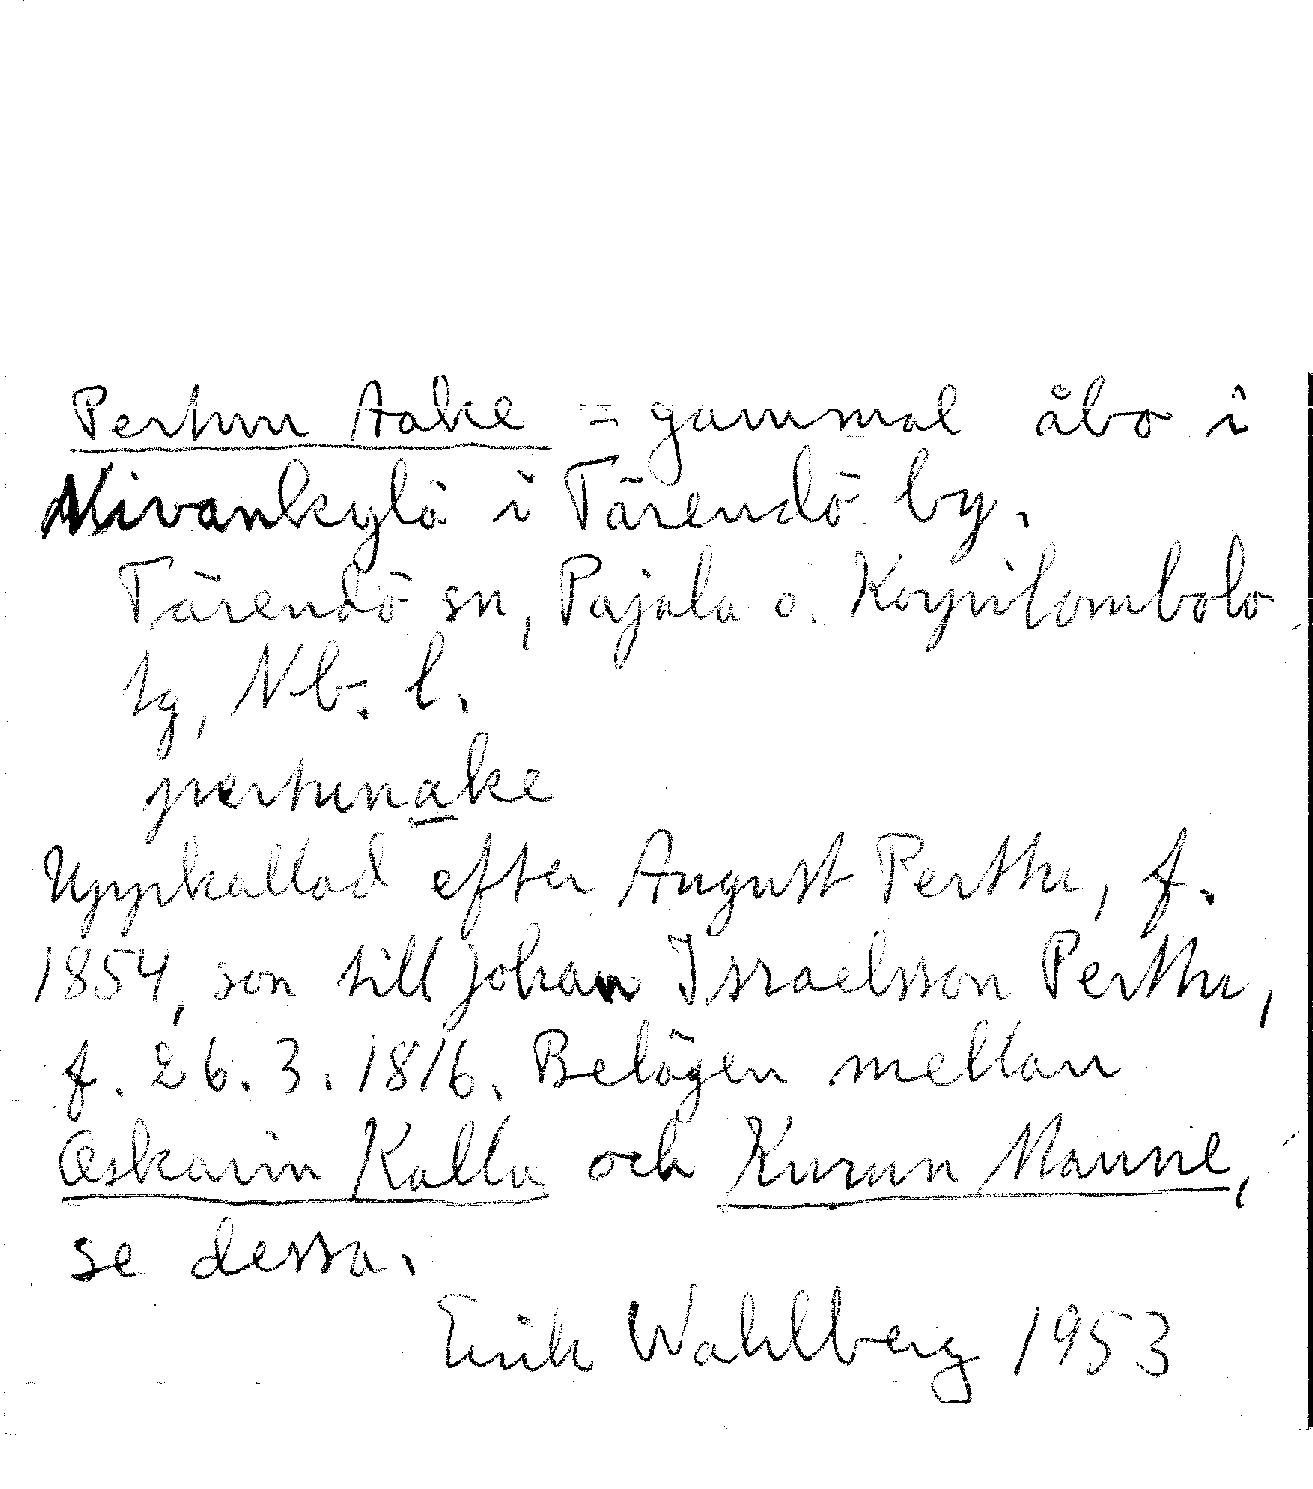 Perhun Aake = gammal åbo i
Nivankylä i Tärendö by.
Tärendö sn, Pajala o. Korpilombolo
tg, Nb. l.
pertunake
Uppkallad efter August Perttu, f.
1854, son till Johan Israelsson Perttu,
f. 26.3.1816. Belägen mellan
Oskarin Kallu och Kurun Manne,
se dessa.
Erik Wahlberg 1953